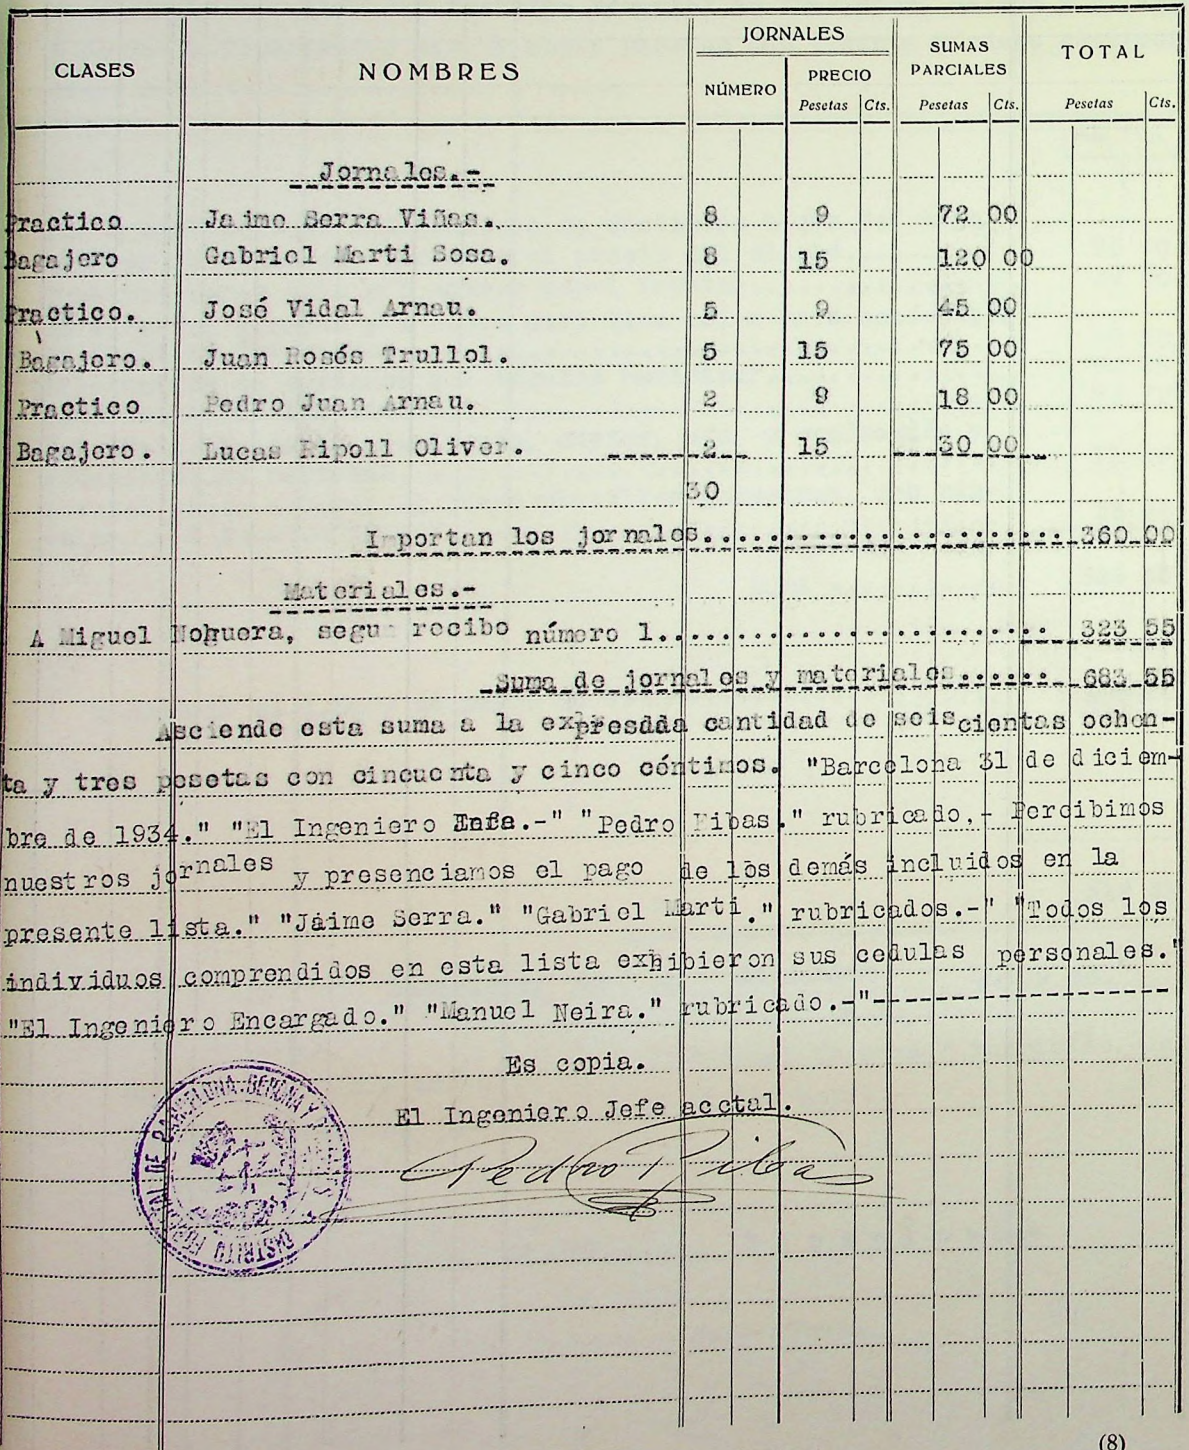 CLASES NOMBRES JORNALES SUMAS PARCIALES TOTAL
NÚMERO PRECIO
Pesetas Cts. Pesetas Cts. Pesetas Cts.
Jornales.-
Practico Jaime Serra Viñas. 8 9 72 00
Bagajero Gabriel Marti Sosa. 8 15 120 00
Practico. José Vidal Arnau. 5 9 45 00
Bagajero. Juan Rosés Trullol. 5 15 75 00
Practico Pedro Juan Arnau. 2 9 18 00
Bagajero. Lucas Ripoll Oliver. 2 15 30 00
30
Importan los jornales........................ 360 00
Materiales.-
A Miguel Noguera, segun recibo número 1........................ 323 55
Suma de jornales y materiales...... 683 55
Asciende esta suma a la expresdda cantidad de seiscientas ochen-
ta y tres pesetas con cincuenta y cinco céntimos. "Barcelona 31 de diciem-
bre de 1934." "El Ingeniero Enfe.-" "Pedro Ribas." rubricado.- Percibimos
nuestros jornales y presenciamos el pago de los demás incluidos en la
presente lista." "Jaime Serra." "Gabriel Marti." rubricados.-" "Todos los
individuos comprendidos en esta lista exhibieron sus cedulas personales."
"El Ingeniero Encargado." "Manuel Neira." rubricado.-"--------------------
Es copia.
El Ingeniero Jefe acctal.
Pedro Ribas
DISTRITO FORESTAL DE BARCELONA-GERONA Y
(8)